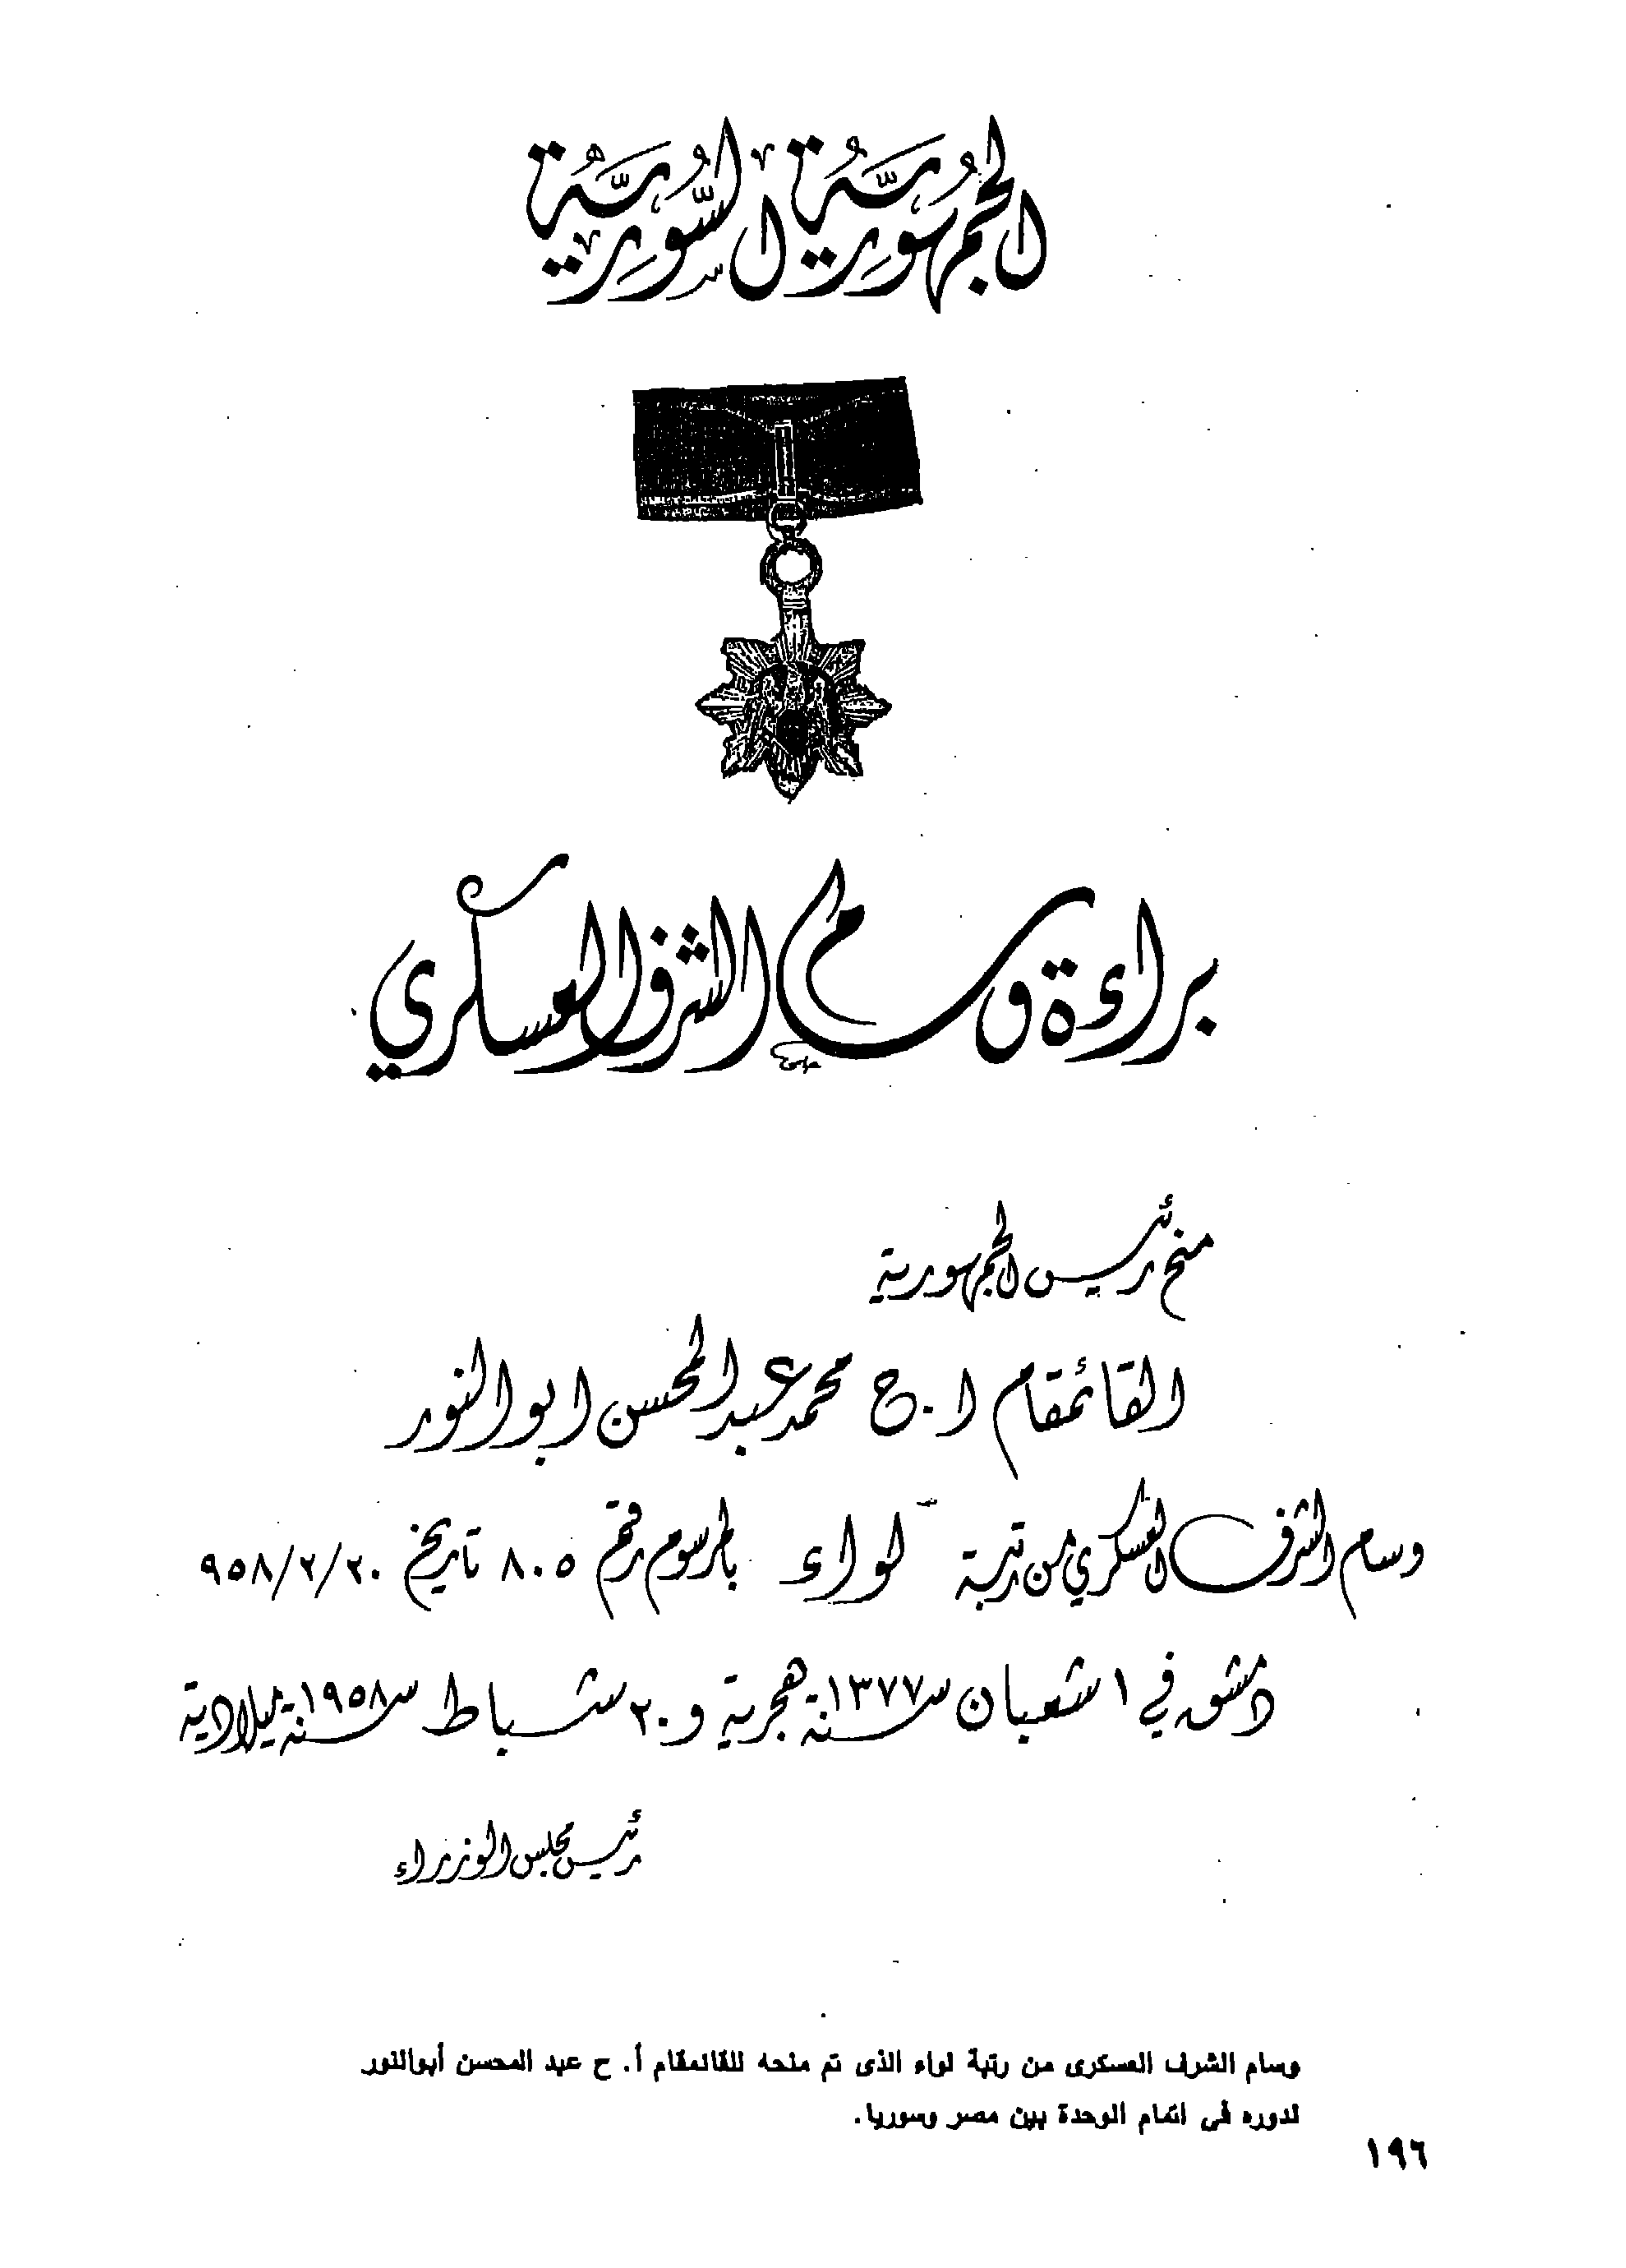 الجمهورية السورية
براءة وسام الشرف العسكري
منح رئيس الجمهورية
القائمقام ا.ح محمد عبد المحسن ابو النور
وسام الشرف العسكري من رتبة لواء بالمرسوم رقم ٨٠٥ تاريخ ٩٥٨/٢/٢٠
دمشق في ١ شعبان سنة ١٣٧٧ هجرية و ٢٠ شباط سنة ١٩٥٨ ميلادية
رئيس مجلس الوزراء
وسام الشرف العسكرى من رتبة لواء الذى تم منحه للقائمقام أ. ح عبد المحسن أبوالنور
لدوره فى اتمام الوحدة بين مصر وسوريا.
١٩٦